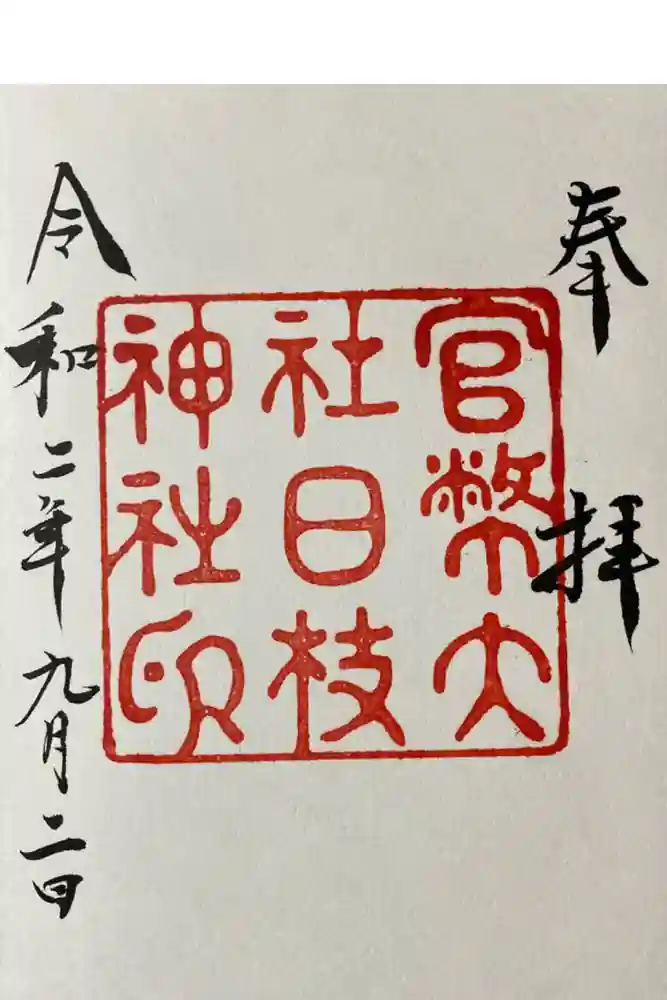 奉拝
官幣大
社日枝
神社印
令和二年九月二日